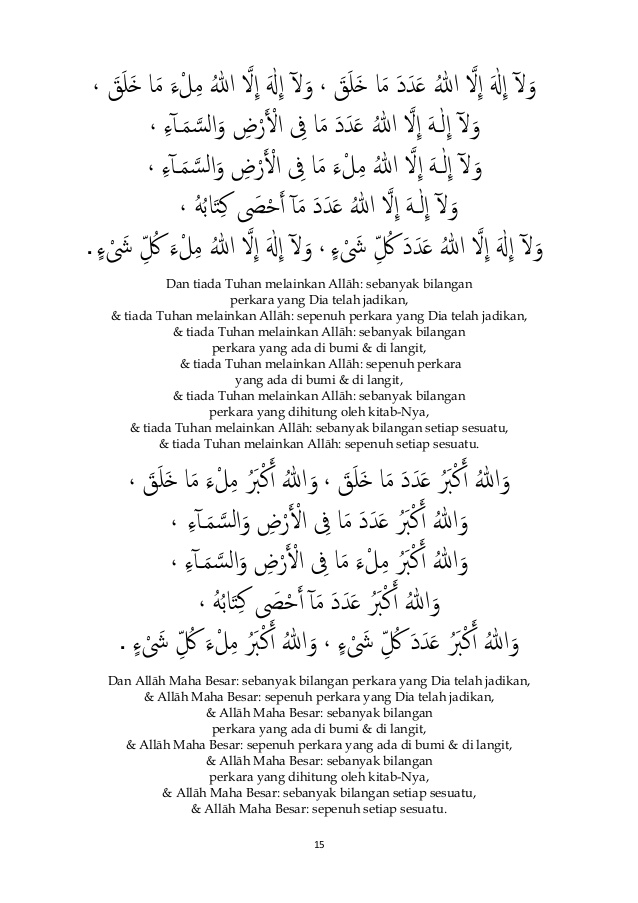 وَلَآ إِلٰهَ إِلَّا اللهُ عَدَدَ مَا خَلَقَ ، وَلَآ إِلٰهَ إِلَّا اللهُ مِلْءَ مَا خَلَقَ ،
وَلَآ إِلٰـهَ إِلَّا اللهُ عَدَدَ مَا فِى الْأَرْضِ وَالسَّمَـآءِ ،
وَلَآ إِلٰـهَ إِلَّا اللهُ مِلْءَ مَا فِى الْأَرْضِ وَالسَّمَـآءِ ،
وَلَآ إِلٰـهَ إِلَّا اللهُ عَدَدَ مَآ أَحْصَى كِتَابُهُ ،
وَلَآ إِلٰهَ إِلَّا اللهُ عَدَدَ كُلِّ شَىْءٍ ، وَلَآ إِلٰهَ إِلَّا اللهُ مِلْءَ كُلِّ شَىْءٍ .
Dan tiada Tuhan melainkan Allāh: sebanyak bilangan
perkara yang Dia telah jadikan,
& tiada Tuhan melainkan Allāh: sepenuh perkara yang Dia telah jadikan,
& tiada Tuhan melainkan Allāh: sebanyak bilangan
perkara yang ada di bumi & di langit,
& tiada Tuhan melainkan Allāh: sepenuh perkara
yang ada di bumi & di langit,
& tiada Tuhan melainkan Allāh: sebanyak bilangan
perkara yang dihitung oleh kitab-Nya,
& tiada Tuhan melainkan Allāh: sebanyak bilangan setiap sesuatu,
& tiada Tuhan melainkan Allāh: sepenuh setiap sesuatu.
وَاللهُ أَكْبَرُ عَدَدَ مَا خَلَقَ ، وَاللهُ أَكْبَرُ مِلْءَ مَا خَلَقَ ،
وَاللهُ أَكْبَرُ عَدَدَ مَا فِى الْأَرْضِ وَالسَّمَـآءِ ،
وَاللهُ أَكْبَرُ مِلْءَ مَا فِى الْأَرْضِ وَالسَّمَـآءِ ،
وَاللهُ أَكْبَرُ عَدَدَ مَآ أَحْصَى كِتَابُهُ ،
وَاللهُ أَكْبَرُ عَدَدَ كُلِّ شَىْءٍ ، وَاللهُ أَكْبَرُ مِلْءَ كُلِّ شَىْءٍ .
Dan Allāh Maha Besar: sebanyak bilangan perkara yang Dia telah jadikan,
& Allāh Maha Besar: sepenuh perkara yang Dia telah jadikan,
& Allāh Maha Besar: sebanyak bilangan
perkara yang ada di bumi & di langit,
& Allāh Maha Besar: sepenuh perkara yang ada di bumi & di langit,
& Allāh Maha Besar: sebanyak bilangan
perkara yang dihitung oleh kitab-Nya,
& Allāh Maha Besar: sebanyak bilangan setiap sesuatu,
& Allāh Maha Besar: sepenuh setiap sesuatu.
15